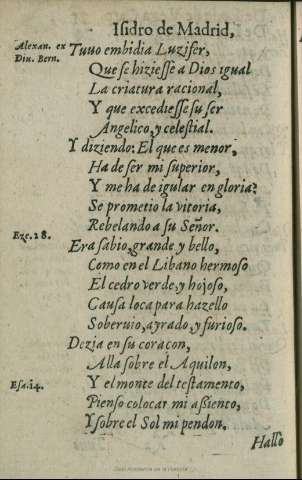 Isidro de Madrid,
Alexan. ex
Diu. Bern.
Tuuo embidia Luzifer,
Que se hiziesse a Dios igual
La criatura racional,
Y que excediesse su ser
Angelico, y celestial.
Y diziendo: El que es menor,
Ha de ser mi superior,
Y me ha de igular en gloria?
Se prometio la vitoria,
Rebelando a su Señor.
Eze. 28.
Era sabio, grande y bello,
Como en el Libano hermoso
El cedro verde, y hojoso,
Causa loca para hazello
Soberuio, ayrado, y furioso.
Dezia en su coraçon,
Alla sobre el Aquilon,
Esa. 14.
Y el monte del testamento,
Pienso colocar mi assiento,
Y sobre el Sol mi pendon.
Hallò